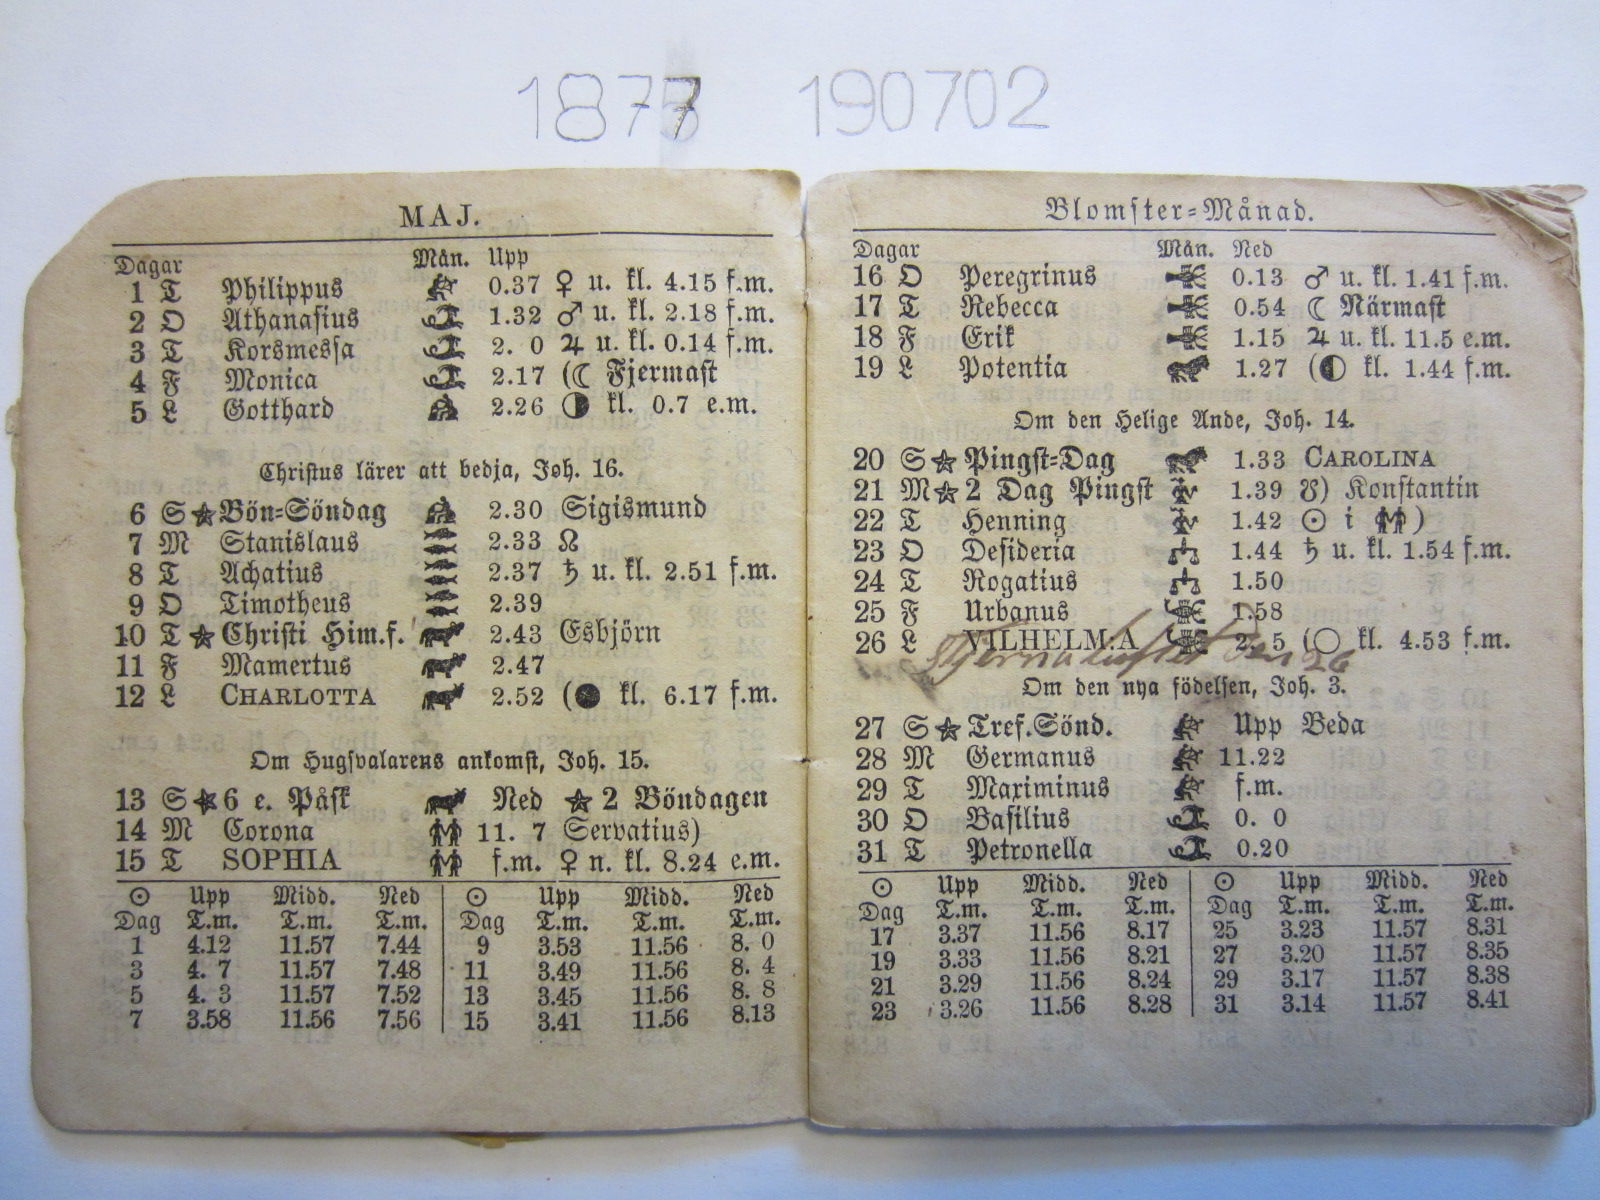 1877 190702
MAJ.
Dagar Mån. Upp
1 T Philippus 0.37 ♀ u. kl. 4.15 f.m.
2 O Athanasius 1.32 ♂ u. kl. 2.18 f.m.
3 T Korsmessa 2. 0 ♃ u. kl. 0.14 f.m.
4 F Monica 2.17 (☾ Fjermast
5 L Gotthard 2.26 ◑ kl. 0.7 e.m.
Christus lärer att bedja, Joh. 16.
6 S ★ Bön=Söndag 2.30 Sigismund
7 M Stanislaus 2.33 ☊
8 T Achatius 2.37 ♄ u. kl. 2.51 f.m.
9 O Timotheus 2.39
10 T ★ Christi Him.f. 2.43 Esbjörn
11 F Mamertus 2.47
12 L CHARLOTTA 2.52 (● kl. 6.17 f.m.
Om Hugsvalarens ankomst, Joh. 15.
13 S ★ 6 e. Påsk Ned ★ 2 Böndagen
14 M Corona 11. 7 Servatius)
15 T SOPHIA f.m. ♀ n. kl. 8.24 e.m.
☉ Upp Midd. Ned ☉ Upp Midd. Ned
Dag T.m. T.m. T.m. Dag T.m. T.m. T.m.
1 4.12 11.57 7.44 9 3.53 11.56 8. 0
3 4. 7 11.57 7.48 11 3.49 11.56 8. 4
5 4. 3 11.57 7.52 13 3.45 11.56 8. 8
7 3.58 11.56 7.56 15 3.41 11.56 8.13
Blomster=Månad.
Dagar Mån. Ned
16 O Peregrinus 0.13 ♂ u. kl. 1.41 f.m.
17 T Rebecca 0.54 ☾ Närmast
18 F Erik 1.15 ♃ u. kl. 11.5 e.m.
19 L Potentia 1.27 (◐ kl. 1.44 f.m.
Om den Helige Ande, Joh. 14.
20 S ★ Pingst=Dag 1.33 CAROLINA
21 M ★ 2 Dag Pingst 1.39 ☋) Konstantin
22 T Henning 1.42 ☉ i ♊)
23 O Desideria 1.44 ♄ u. kl. 1.54 f.m.
24 T Rogatius 1.50
25 F Urbanus 1.58
26 L VILHELM:A 2. 5 (○ kl. 4.53 f.m.
den 26
Om den nya födelsen, Joh. 3.
27 S ★ Tref.Sönd. Upp Beda
28 M Germanus 11.22
29 T Maximinus f.m.
30 O Basilius 0. 0
31 T Petronella 0.20
☉ Upp Midd. Ned ☉ Upp Midd. Ned
Dag T.m. T.m. T.m. Dag T.m. T.m. T.m.
17 3.37 11.56 8.17 25 3.23 11.57 8.31
19 3.33 11.56 8.21 27 3.20 11.57 8.35
21 3.29 11.56 8.24 29 3.17 11.57 8.38
23 3.26 11.56 8.28 31 3.14 11.57 8.41